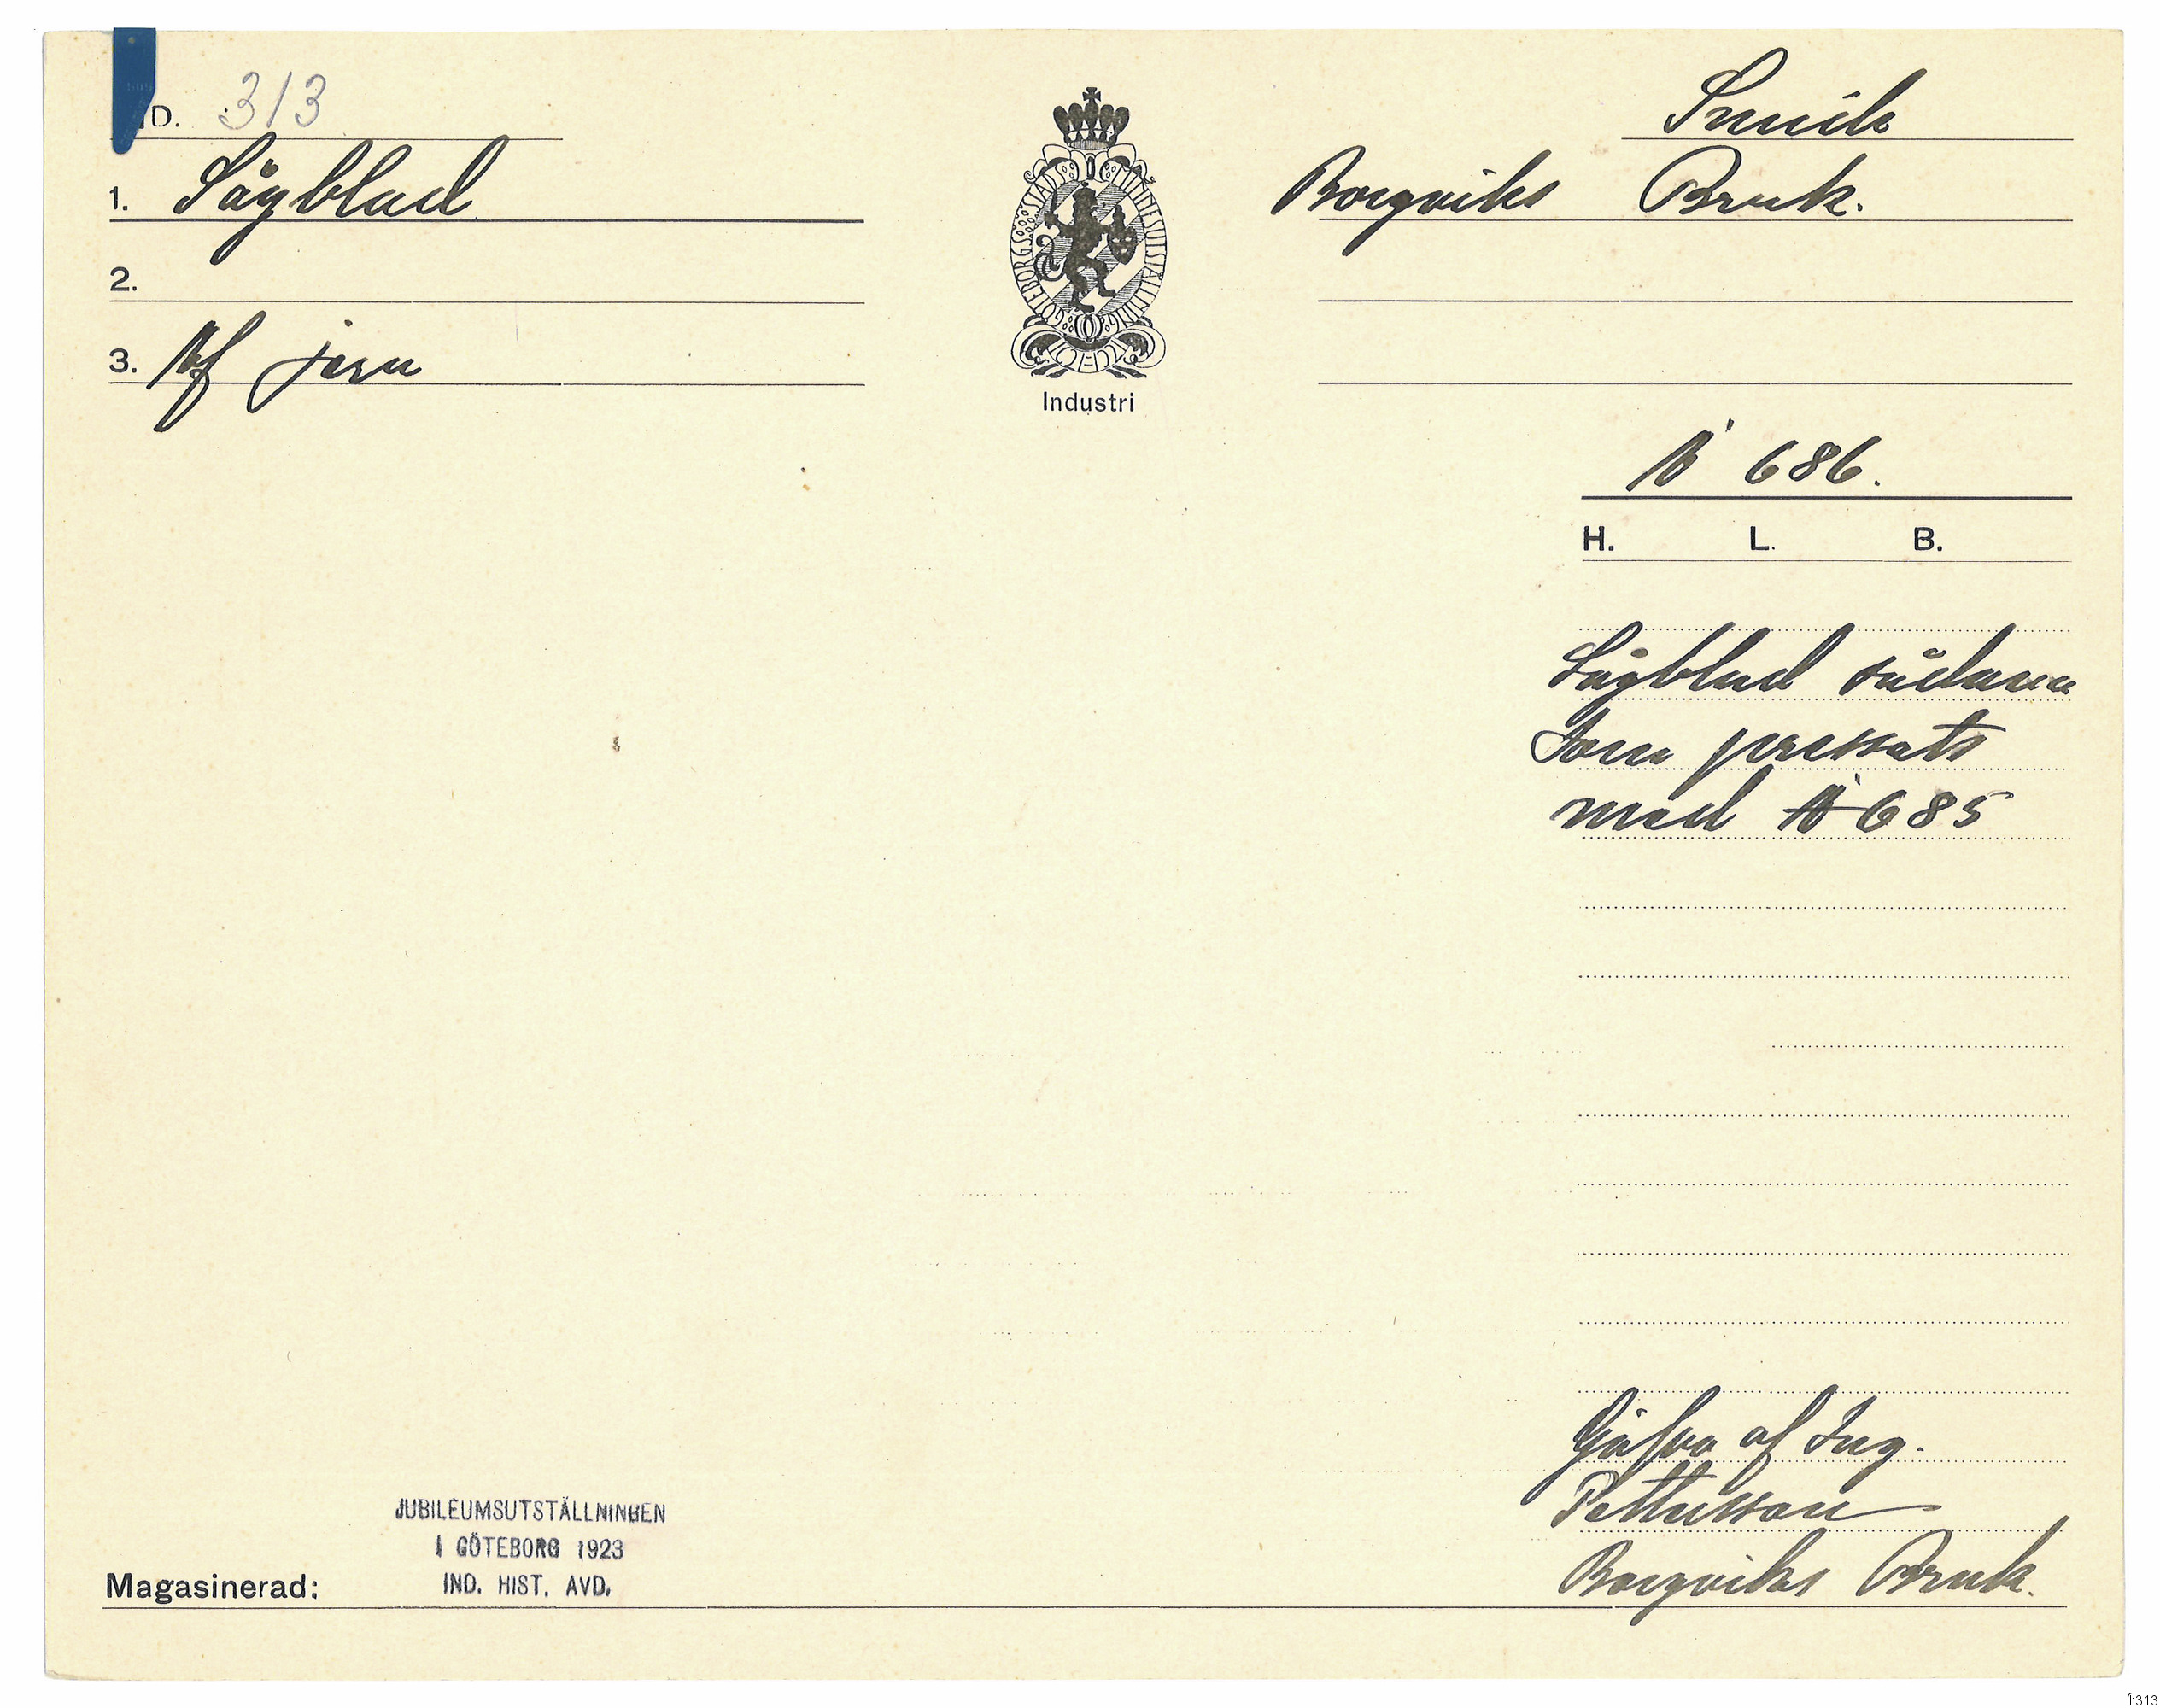 ID. 313
Smide
1. Sågblad
Borgviks Bruk.
2.
3. Af jern
GÖTEBORGS STADS MINNESUTSTÄLLNING
Industri
N 686.
H. L. B.
Sågblad sådana
som pressats
med N 685
Gåfva af Ing.
Pettersson
Borgviks Bruk.
JUBILEUMSUTSTÄLLNINGEN
I GÖTEBORG 1923
IND. HIST. AVD.
Magasinerad:
I:313